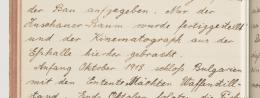 der Bau aufgegeben. Nur der
Zuschauer-Raum wurde fertiggestellt
und der Kinematograph aus der
Eßhalle hierher gebracht.
Anfang Oktober 1918 schloß Bulgarien
mit den Entente Mächten Waffenstill-
stand. Ende Oktober folgten die